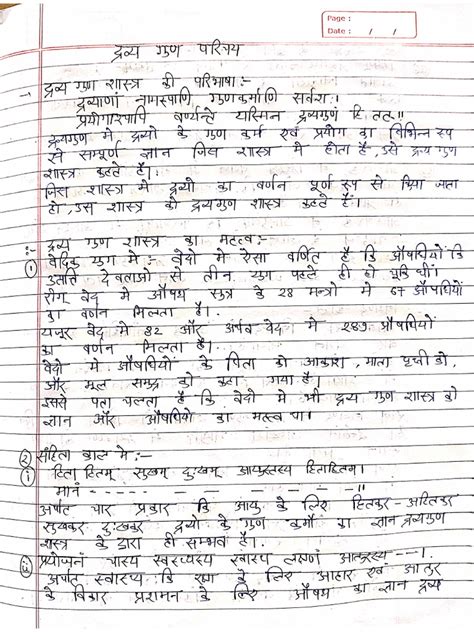 Page :
Date :    /    /
द्रव्य गुण परिचय
द्रव्य गुण शास्त्र की परिभाषा :-
द्रव्याणां नामरूपाणि , गुणकर्माणि सर्वशः।
प्रयोगाश्चापि वर्ण्यन्ते यस्मिन द्रव्यगुणं हि तत् ॥
द्रव्यगुण मे द्रव्यो के गुण कर्म एवं प्रयोग का विभिन्न रूप
से सम्पूर्ण ज्ञान जिस शास्त्र मे होता है, उसे द्रव्य गुण
शास्त्र कहते है।
जिस शास्त्र मे द्रव्यो का वर्णन पूर्ण रूप से किया जाता
हो, उस शास्त्र को द्रव्यगुण शास्त्र कहते हैं।
:- द्रव्य गुण शास्त्र का महत्व :-
① वैदिक युग मे :- वेदो मे ऐसा वर्णित है कि औषधियों कि
उत्पत्ति देवताओ से तीन युग पहले ही हो चूकि थीं।
रीग वेद मे औषध सुत्र के 28 मन्त्रो मे 67 औषधीयों
का वर्णन मिलता है।
यजूर वेद मे 82 और अर्थव वेद मे 289 औषधियों
का वर्णन मिलता है।
वेदो मे औषधियों के पिता को आकाश, माता पृथ्वी को,
और मूल समुद्र को कहा गया है।
इससे पता चलता है कि वेदो मे भी द्रव्य गुण शास्त्र को
ज्ञान और औषधियो का महत्व था।
② संहिता काल मे :-
ⓘ हिता हितम् सुखम् दुःखम् आयुस्तस्य हिताहितम्।
मानं - - - - - - - - - ॥
अर्थात चार प्रकार कि आयु के लिए हितकर - अहितकर
सुखकर दुःखकर द्रव्यो के गुण कर्मो का ज्ञान द्रव्यगुण
शास्त्र के द्वारा ही सम्भव है।
ⓘⓘ प्रयोजनं चास्य स्वस्थ्यस्य स्वास्थ्य रक्षणं आतुरस्य ---।
अर्थात स्वास्थ्य कि रक्षा के लिए आहार एवं आतुर
के विकार प्रशमन के लिए औषध का ज्ञान द्रव्य